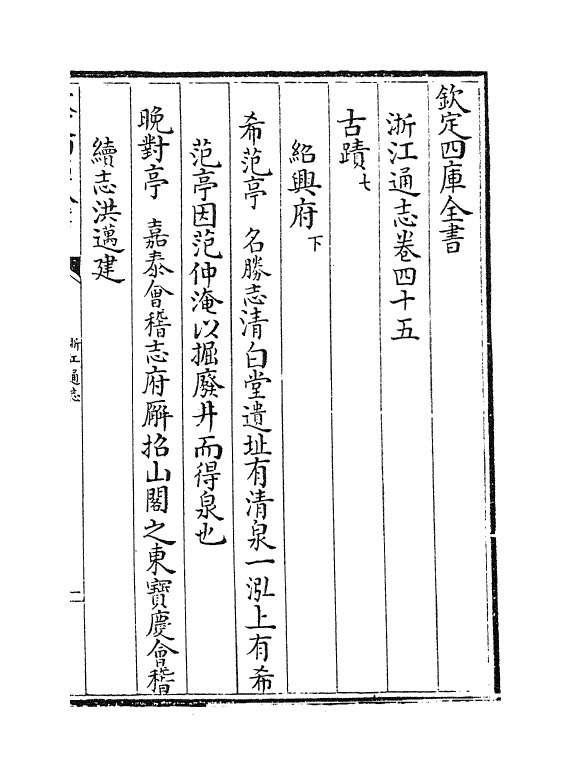 欽定四庫全書
浙江通志卷四十五
古蹟七
紹興府下
希范亭 名勝志清白堂遺址有清泉一泓上有希
范亭因范仲淹以掘廢井而得泉也
晚對亭 嘉泰會稽志府廨招山閣之東寶慶會稽
續志洪邁建
浙江通志